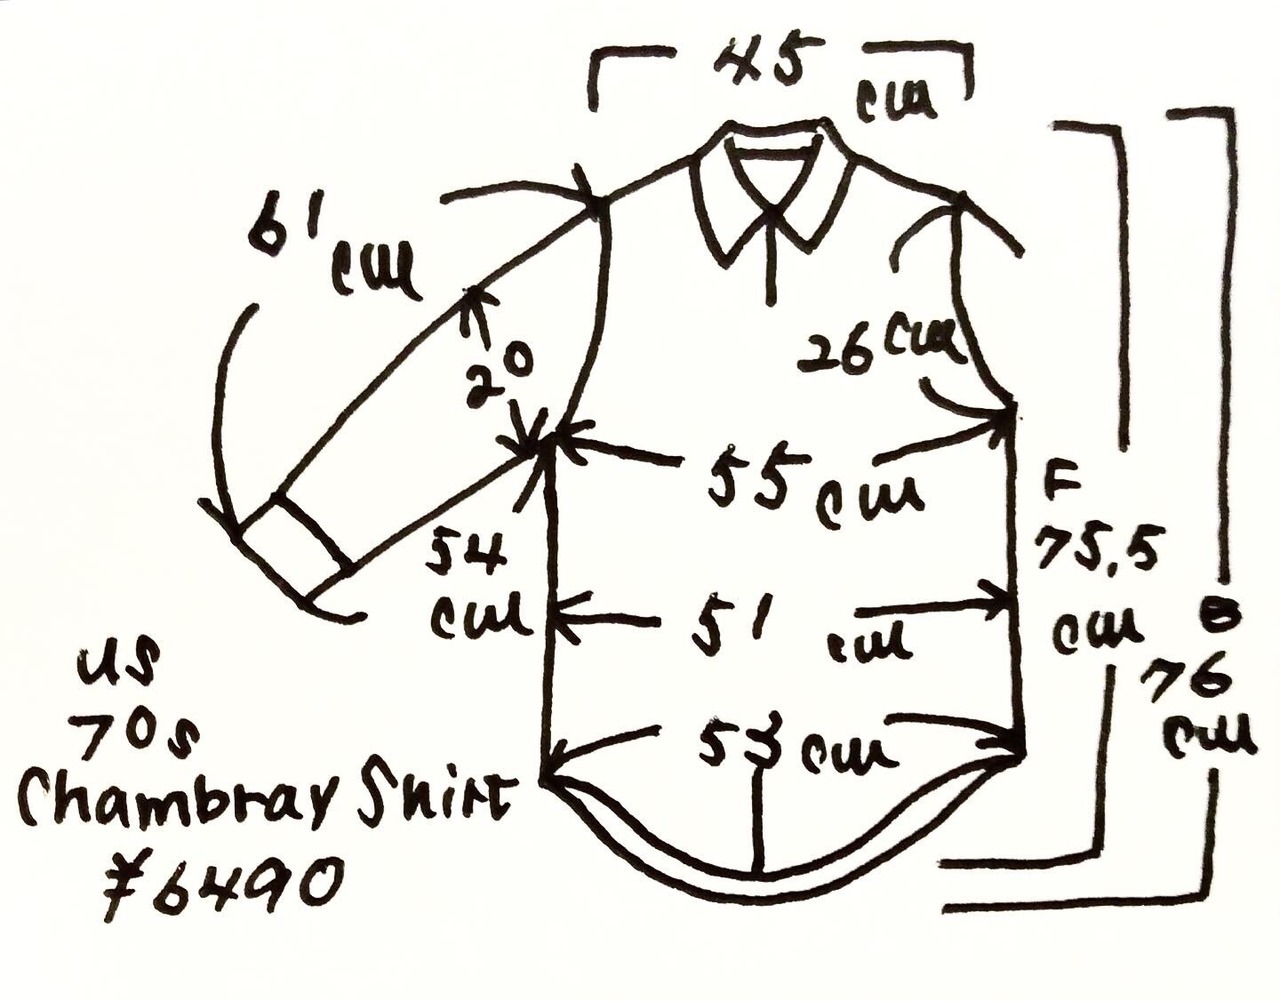 45
cm
61
cm
20
26 cm
55
cm
F
75.5
cm
54
cm
51
cm
B
76
cm
53 cm
US
70s
Chambray Shirt
¥6490